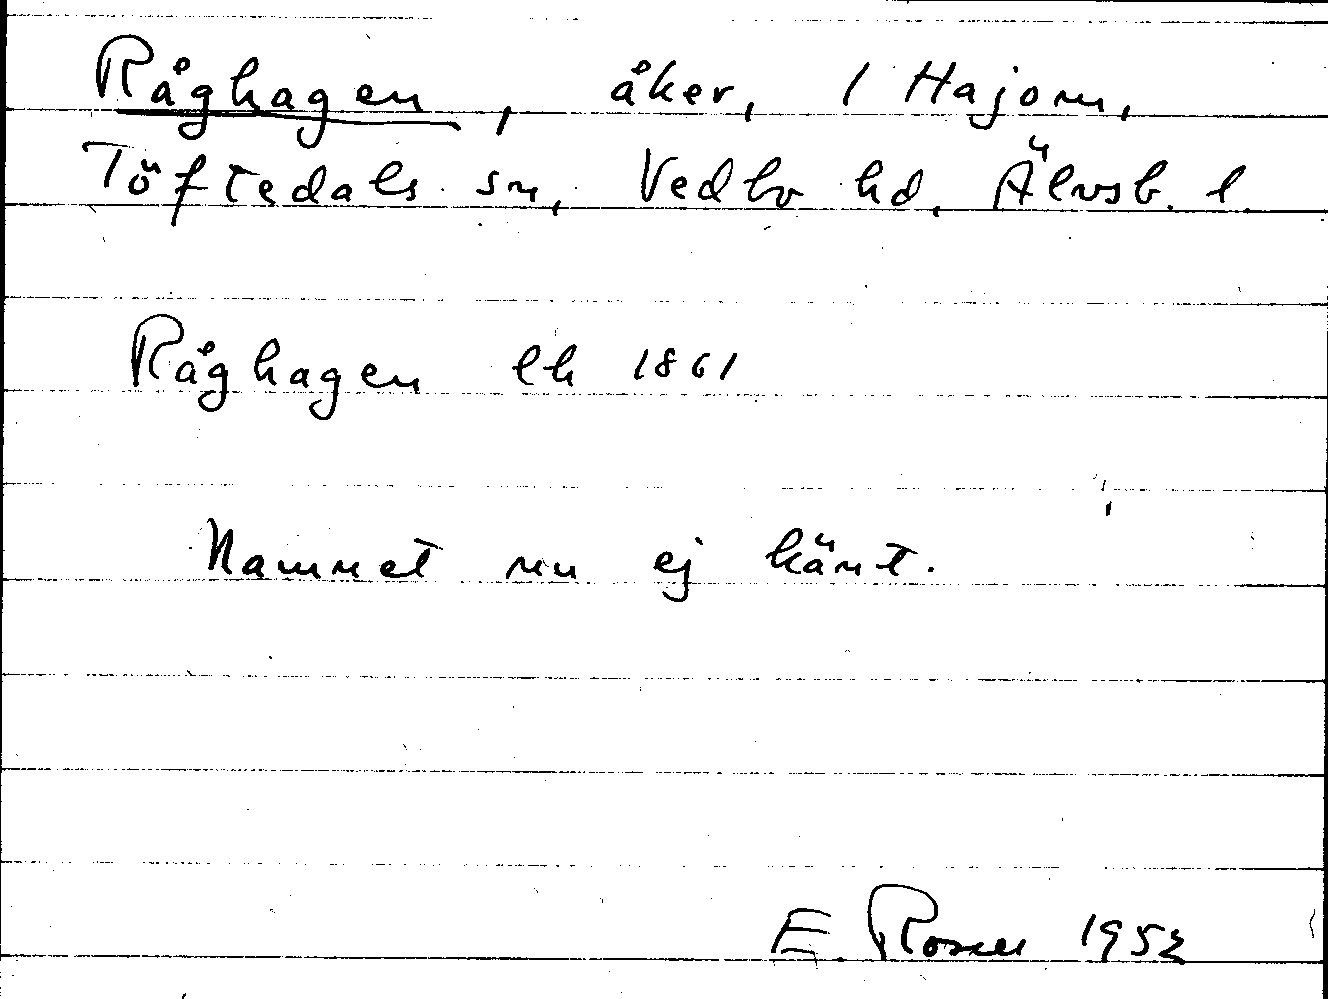 Råghagen, åker, 1 Hajom,
Töftedals sn, Vedbo hd, Älvsb. l.
Råghagen lh 1861
Namnet nu ej känt.
E. Rosell 1952